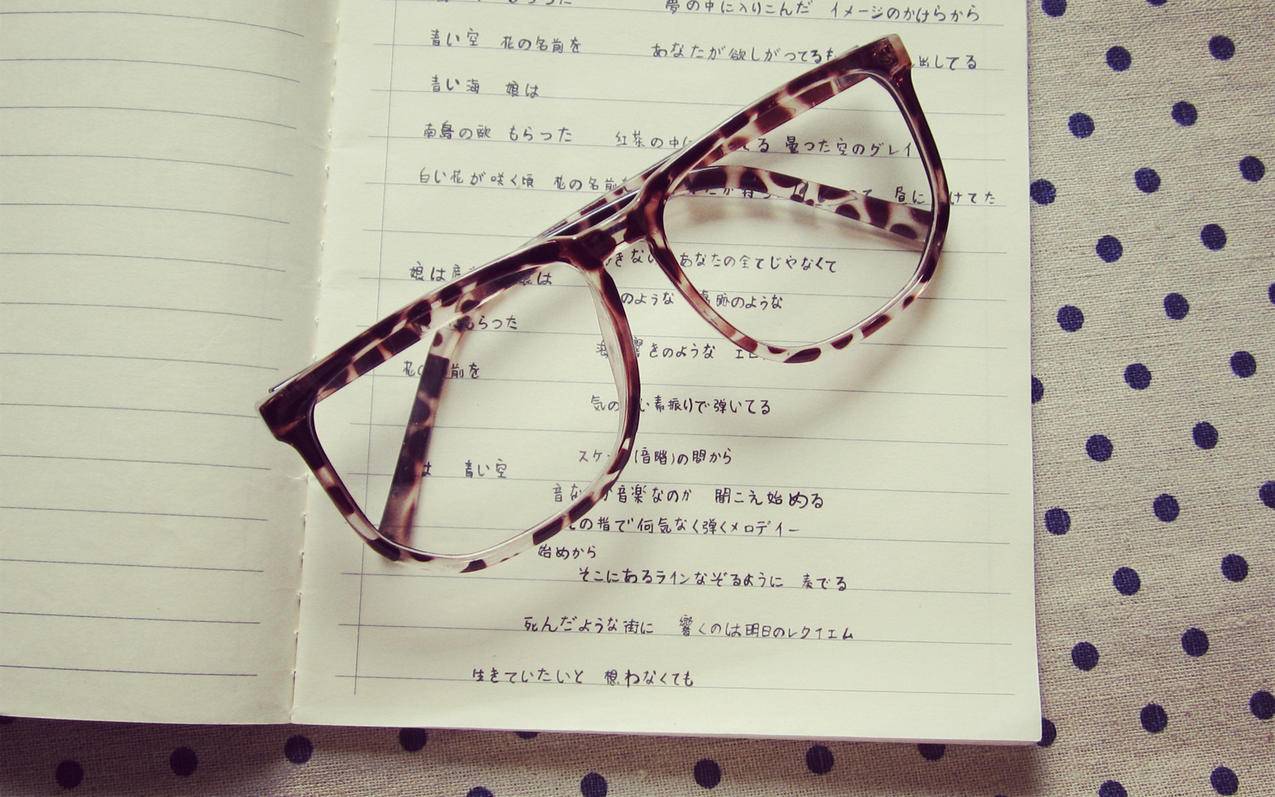 もらった 夢の中に入りこんだ イメージのかけらから
青い空 花の名前を あなたが欲しがってるも 出してる
青い海 娘は
南島の歌 もらった 紅茶の中に てる 曇った空のグレイ
白い花が咲く頃 花の名前 て 昼に けてた
きない あなたの全てじゃなくて
娘は は
のような のような
もらった
響きのような
花の 前を
気の い素振りで弾いてる
スケ (音階)の間から
は 青い空
音な 音楽なのか 聞こえ始める
の指で何気なく弾くメロディー
始めから
そこにあるラインなぞるように 奏でる
死んだような街に 響くのは明日のレクイエム
生きていたいと 想わなくても